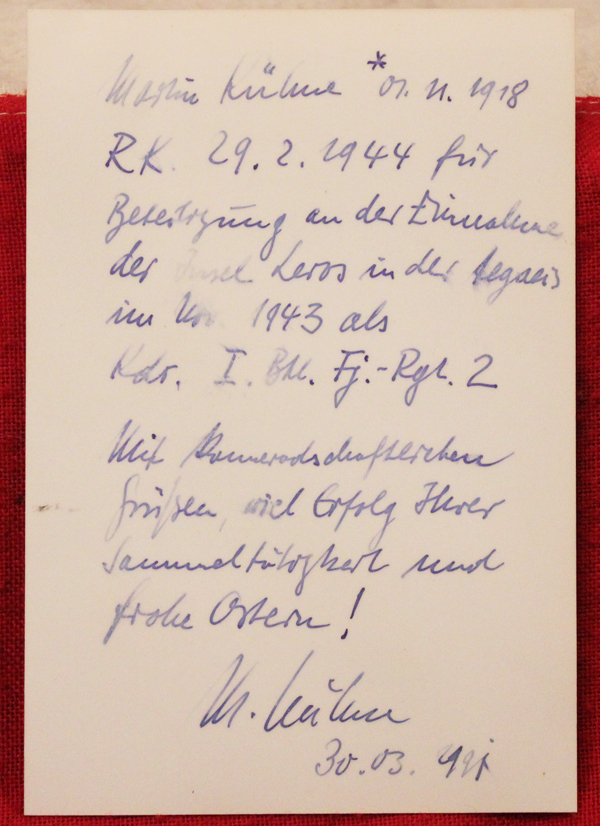 Martin Kühne *01.11.1918
RK. 29.2.1944 für
Beteiligung an der Einnahme
der Insel Leros in der Aegaeis
im Nov 1943 als
Kdr. I. Btl. Fj.-Rgt. 2
Mit kameradschaftlichen
Grüßen, viel Erfolg Ihrer
Sammeltätigkeit und
frohe Ostern!
M. Kühne
30.03.